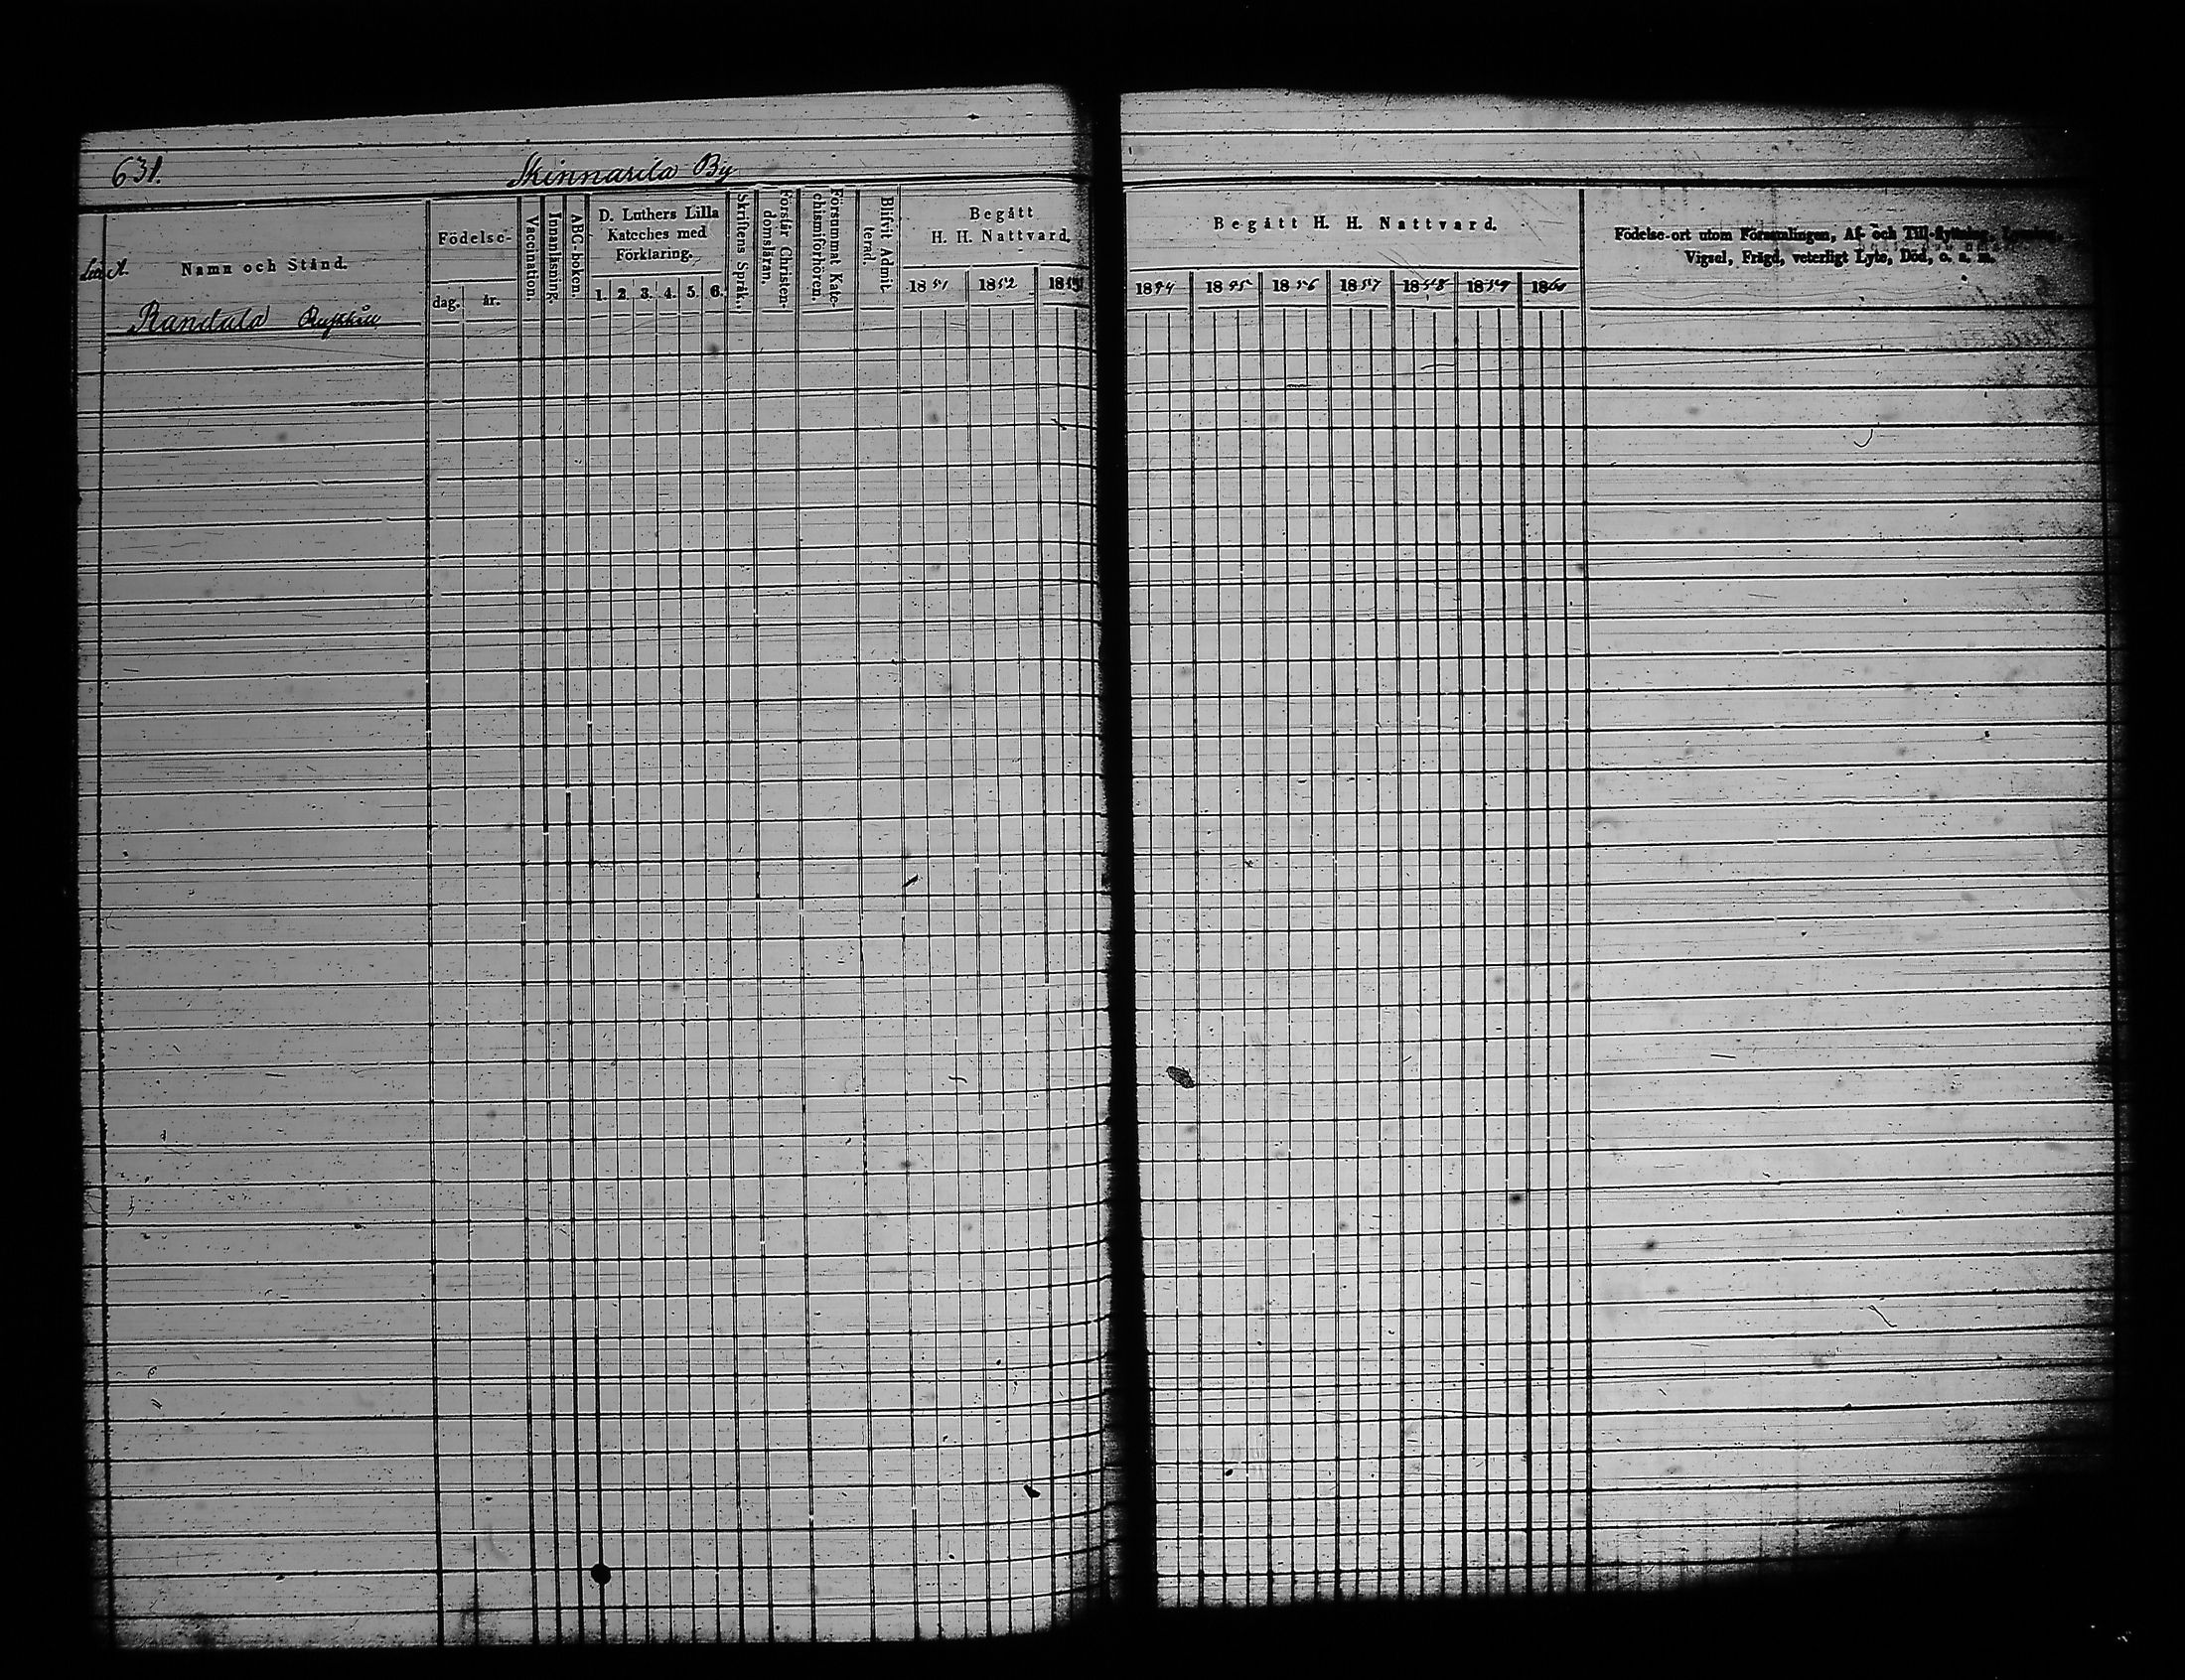 631.
Skinnarila By
Litt. A.
Namn och Stånd.
Födelse-
dag.
år.
Vaccination.
Innanläsning.
ABC-boken.
D. Luthers Lilla
Kateches med
Förklaring.
1. 2. 3. 4. 5. 6.
Skriftens Språk.
Förstår Christen-
domsläran.
Försummat Kate-
chismiförhören.
Blifvit Admit-
terad.
Begått
H. H. Nattvard.
1851 1852 1853
Begått H. H. Nattvard.
1854 1855 1856 1857 1858 1859 1860
Födelse-ort utom Församlingen, Af- och Till-flyttning, Lysning,
Vigsel, Frägd, veterligt Lyte, Död, o. s. m.
Rantala